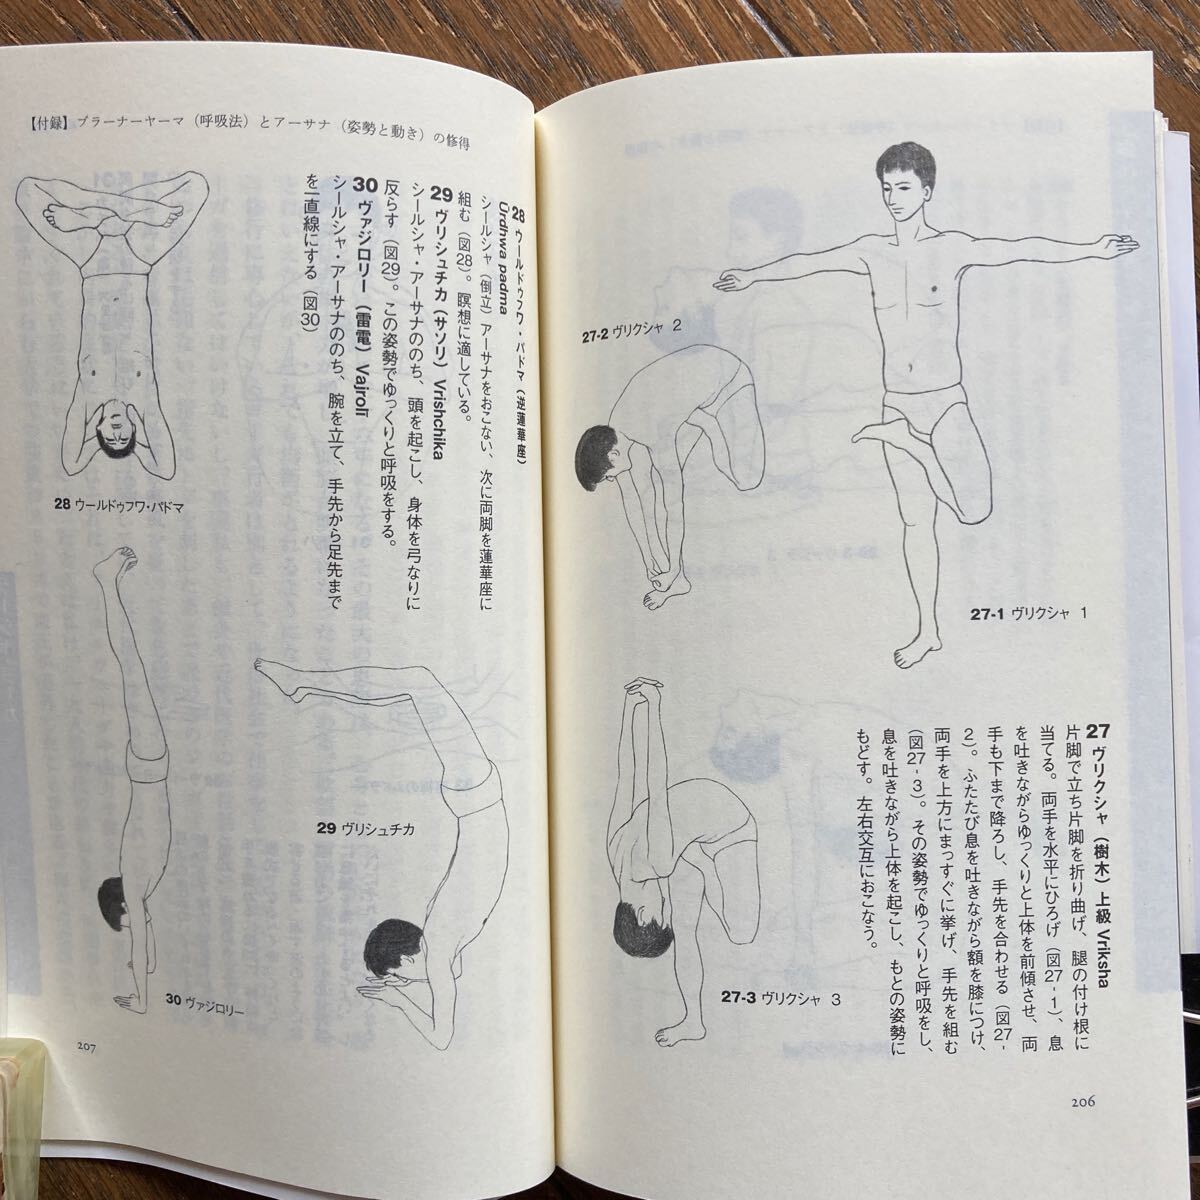 27 ヴリクシャ（樹木）上級 Vriksha
片脚で立ち片脚を折り曲げ、腿の付け根に
当てる。両手を水平にひろげ（図27-1）、息
を吐きながらゆっくりと上体を前傾させ、両
手も下まで降ろし、手先を合わせる（図27-
2）。ふたたび息を吐きながら額を膝につけ、
両手を上方にまっすぐに挙げ、手先を組む
（図27-3）。その姿勢でゆっくりと呼吸をし、
息を吐きながら上体を起こし、もとの姿勢に
もどす。左右交互におこなう。
27-1 ヴリクシャ 1
27-2 ヴリクシャ 2
27-3 ヴリクシャ 3
206
【付録】プラーナーヤーマ（呼吸法）とアーサナ（姿勢と動き）の修得
28 ウールドゥフワ・パドマ（逆蓮華座）
Ūrdhwa padma
シールシャ（倒立）アーサナをおこない、次に両脚を蓮華座に
組む（図28）。瞑想に適している。
29 ヴリシュチカ（サソリ）Vrishchika
シールシャ・アーサナののち、頭を起こし、身体を弓なりに
反らす（図29）。この姿勢でゆっくりと呼吸をする。
30 ヴァジロリー（雷電）Vajrolī
シールシャ・アーサナののち、腕を立て、手先から足先まで
を一直線にする（図30）
28 ウールドゥフワ・パドマ
29 ヴリシュチカ
30 ヴァジロリー
207